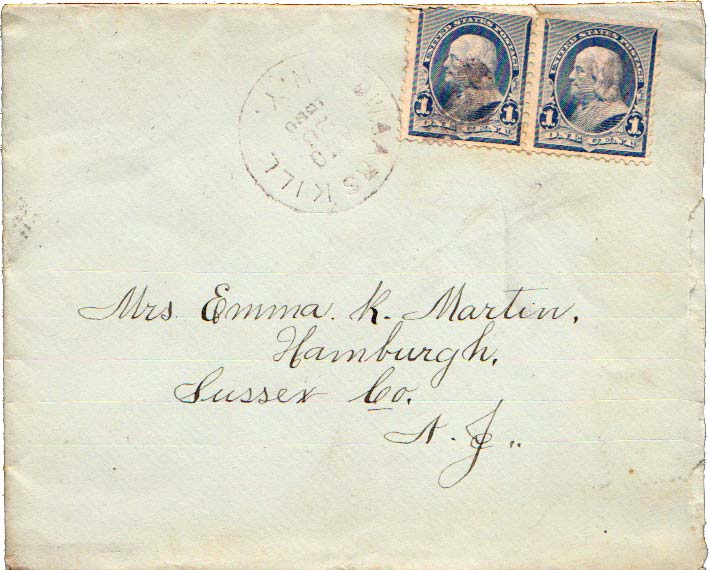 UNITED STATES POSTAGE
1 1
ONE CENT
UNITED STATES POSTAGE
1 1
ONE CENT
KILL
N.Y.
Mrs. Emma. K. Martin,
Hamburgh,
Sussex Co.
N. J..